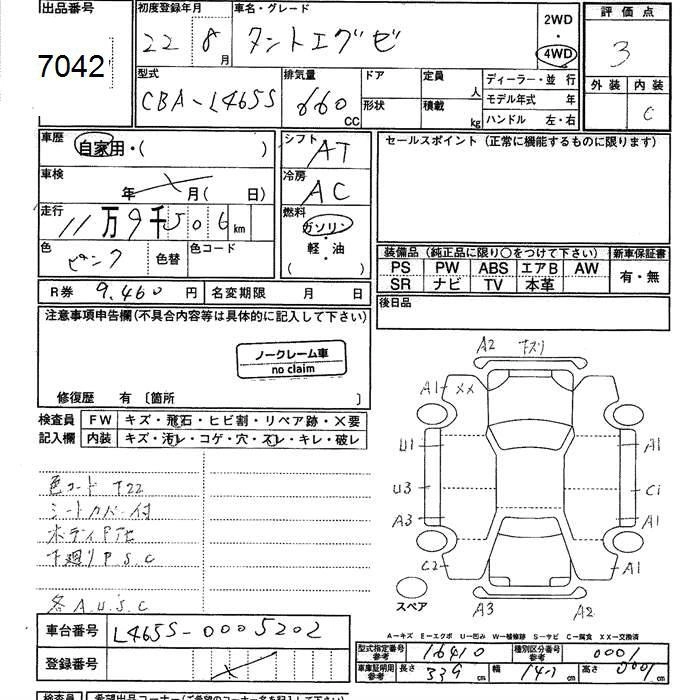 出品番号 初度登録年月 車名・グレード 2WD 評価点
7042 22 8月 タントエグゼ ・ 4WD 3
型式 排気量 ドア 定員 人 ディーラー・並行 外装 内装
CBA-L465S 660 CC 形状 積載 kg モデル年式 年 C
ハンドル 左・右
車歴 自家用・( ) シフト AT セールスポイント (正常に機能するものに限ります)
車検 年 月( 日) 冷房 AC
走行 11万9千506km 燃料 ガソリン・
色 ピンク 色替 色コード 軽・油 装備品 (純正品に限り○をつけて下さい) 新車保証書
( ) PS PW ABS エアB AW 有・無
R券 9,460円 名変期限 月 日 SR ナビ TV 本革
注意事項申告欄(不具合内容等は具体的に記入して下さい) 後日品
ノークレーム車
no claim
修復歴 有 〔箇所 〕
検査員 FW キズ・飛石・ヒビ割・リペア跡・×要
記入欄 内装 キズ・汚レ・コゲ・穴・スレ・キレ・破レ
A2 下スリ
A1 XX
U1 A1
U3 C1
A3 A1
C2 A1
A3 A2
色コード T22
シートカバー付
下廻りP.S.C
各A.U.S.C
スペア
A-キズ E-エクボ U-凹み W-補修跡 S-サビ C-腐食 XX-交換済
車台番号 L465S-0005202
型式指定番号 参考 16410 種別区分番号 参考 0001
登録番号
車庫証明用 参考 長さ 339 cm 幅 147 cm 高さ cm
検査員 希望出品コーナー(ご希望のコーナー名を記入して下さい)